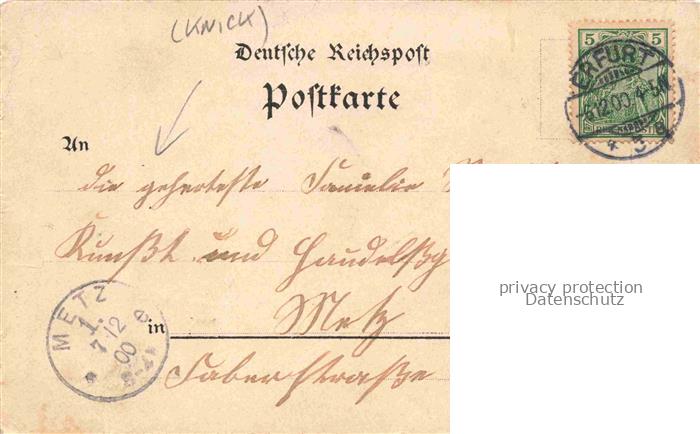 (KNICK)
Deutsche Reichspost
Postkarte
5 5
ERFURT
6.12.00. 4-5N.
* 3 a
An
die geehrteste Familie
Kunßt und Handelßg
METZ
1.
7.12
00
e
in Metz
Faberstraße
privacy protection
Datenschutz